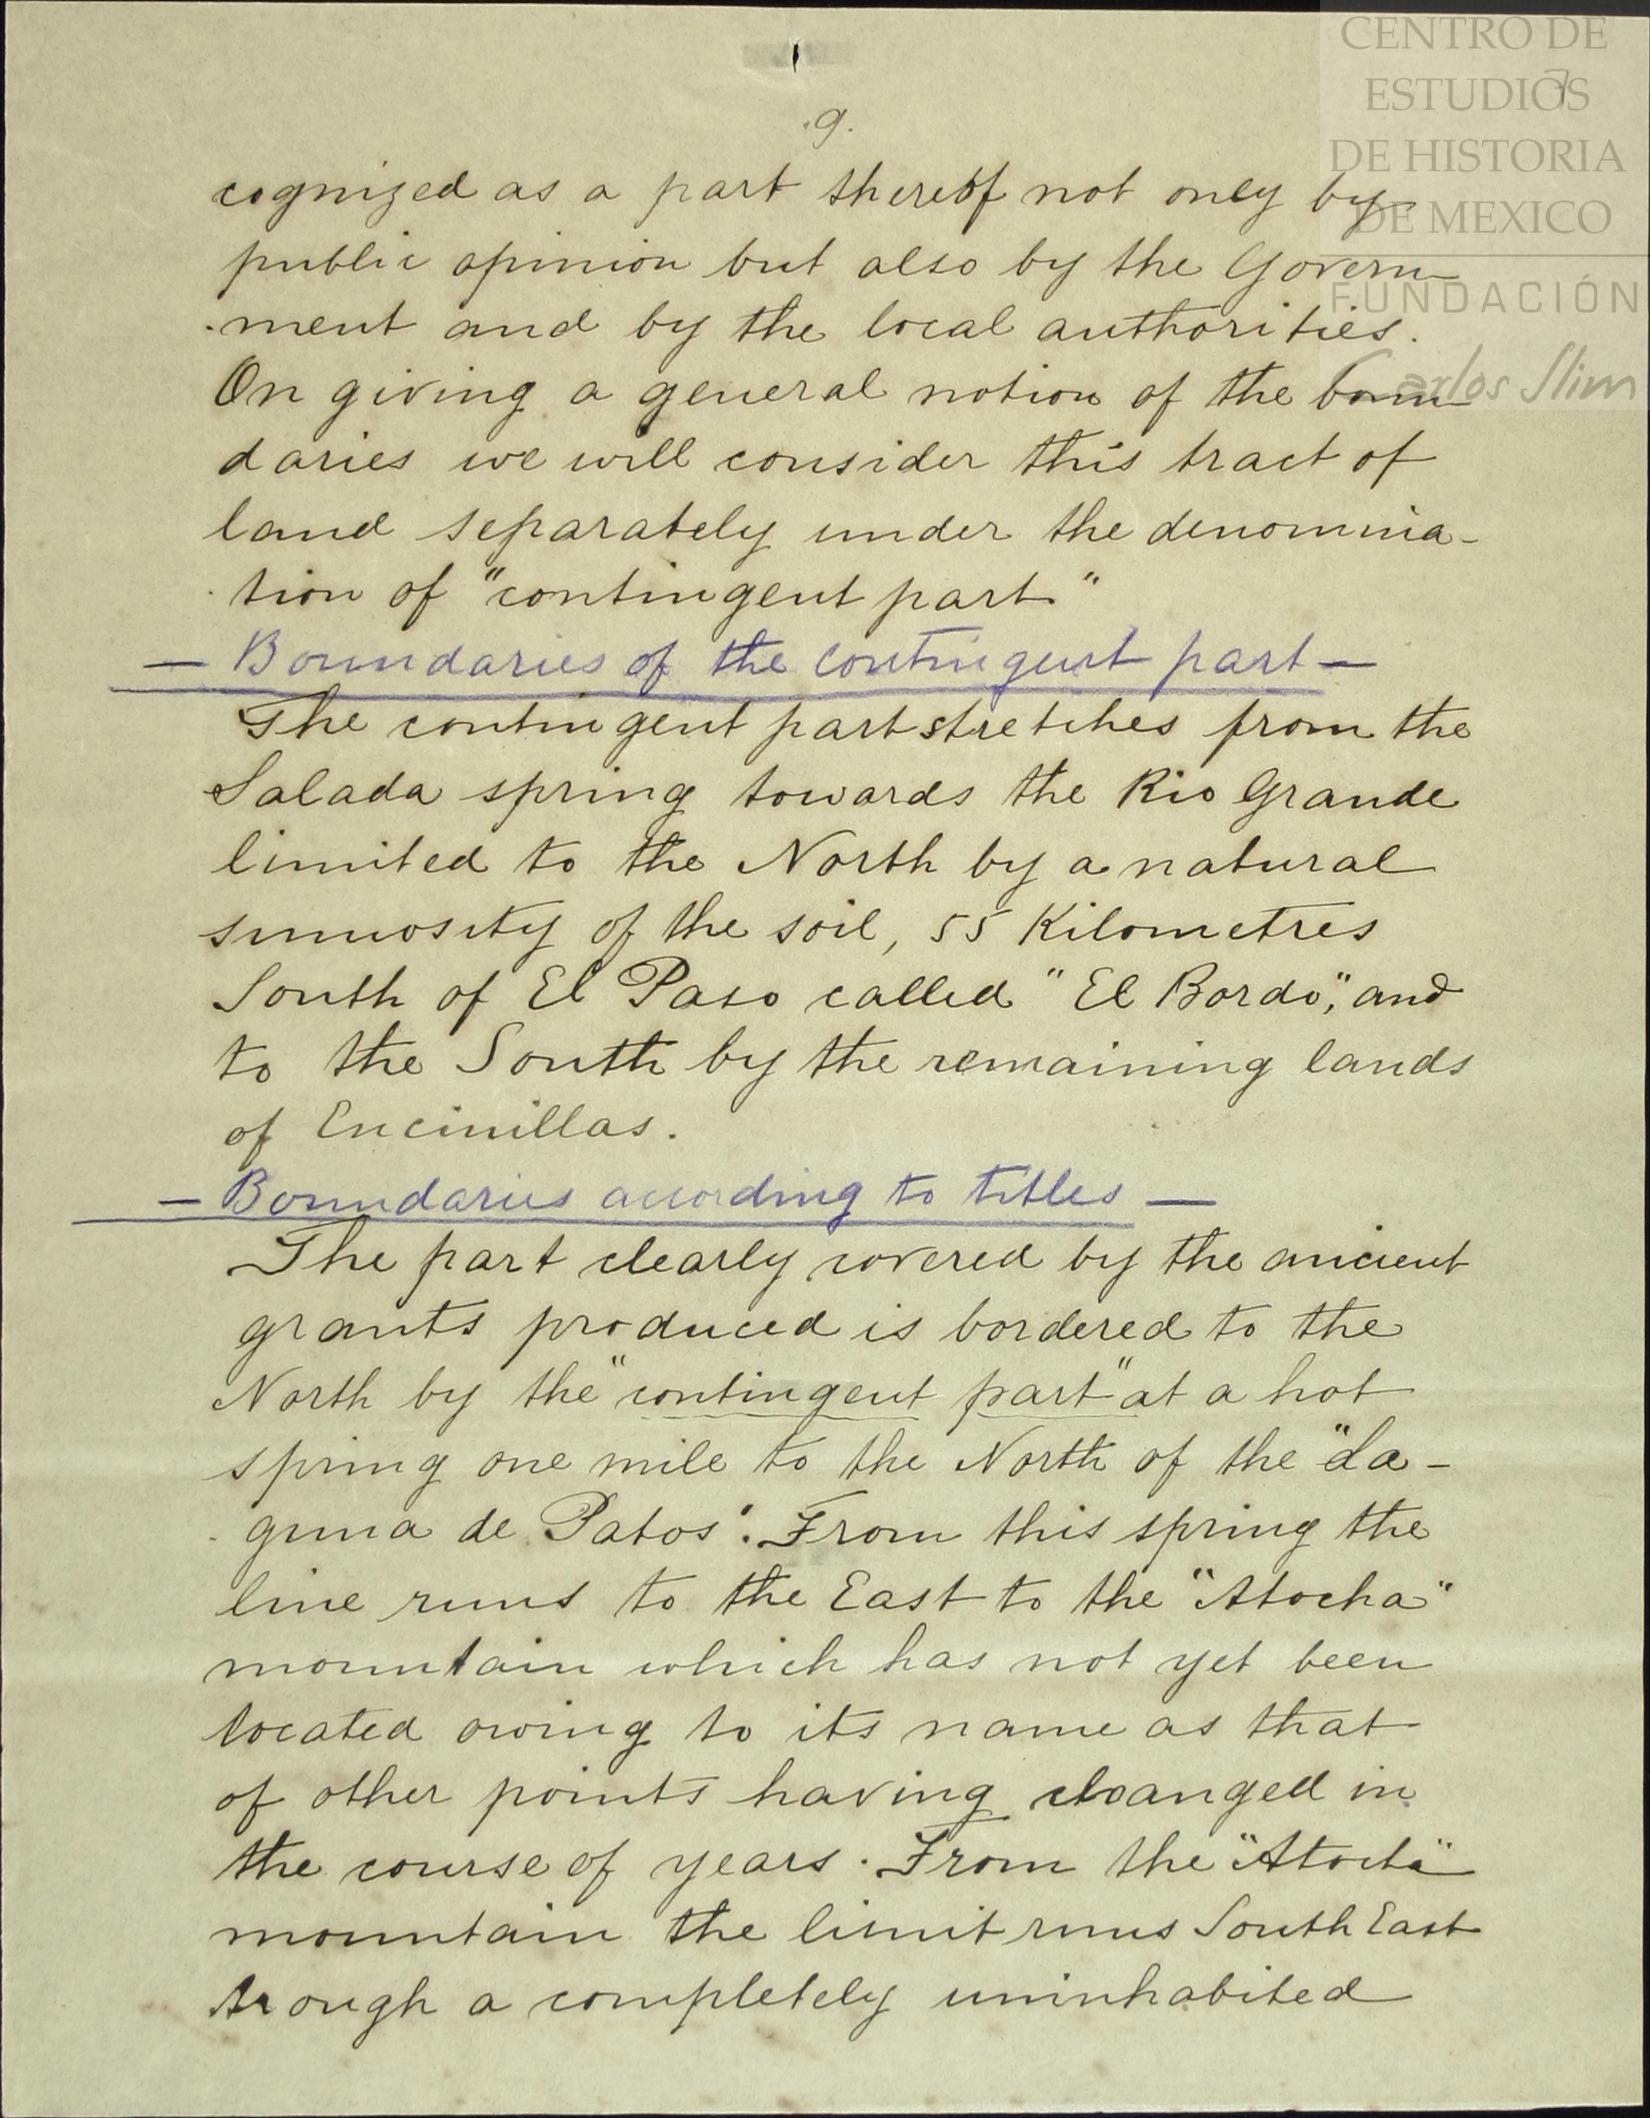 CENTRO DE
ESTUDIOS
DE HISTORIA
DE MEXICO
FUNDACIÓN
Carlos Slim
7
.9.
cognized as a part thereof not only by
public opinion but also by the Govern
-ment and by the local authorities.
On giving a general notion of the boun
daries we will consider this tract of
land separately under the denomina-
-tion of "contingent part"
— Boundaries of the contingent part —
The contingent part stretches from the
Salada spring towards the Rio Grande
limited to the North by a natural
sinuosity of the soil, 55 Kilometres
South of El Paso called "El Bordo", and
to the South by the remaining lands
of Encinillas.
— Boundaries according to titles —
The part clearly covered by the ancient
grants produced is bordered to the
North by the "contingent part" at a hot
spring one mile to the North of the "La-
-guna de Patos". From this spring the
line runs to the East to the "Atocha"
mountain which has not yet been
located owing to its name as that
of other points having changed in
the course of years. From the "Atocha"
mountain the limit runs South East
trough a completely uninhabited